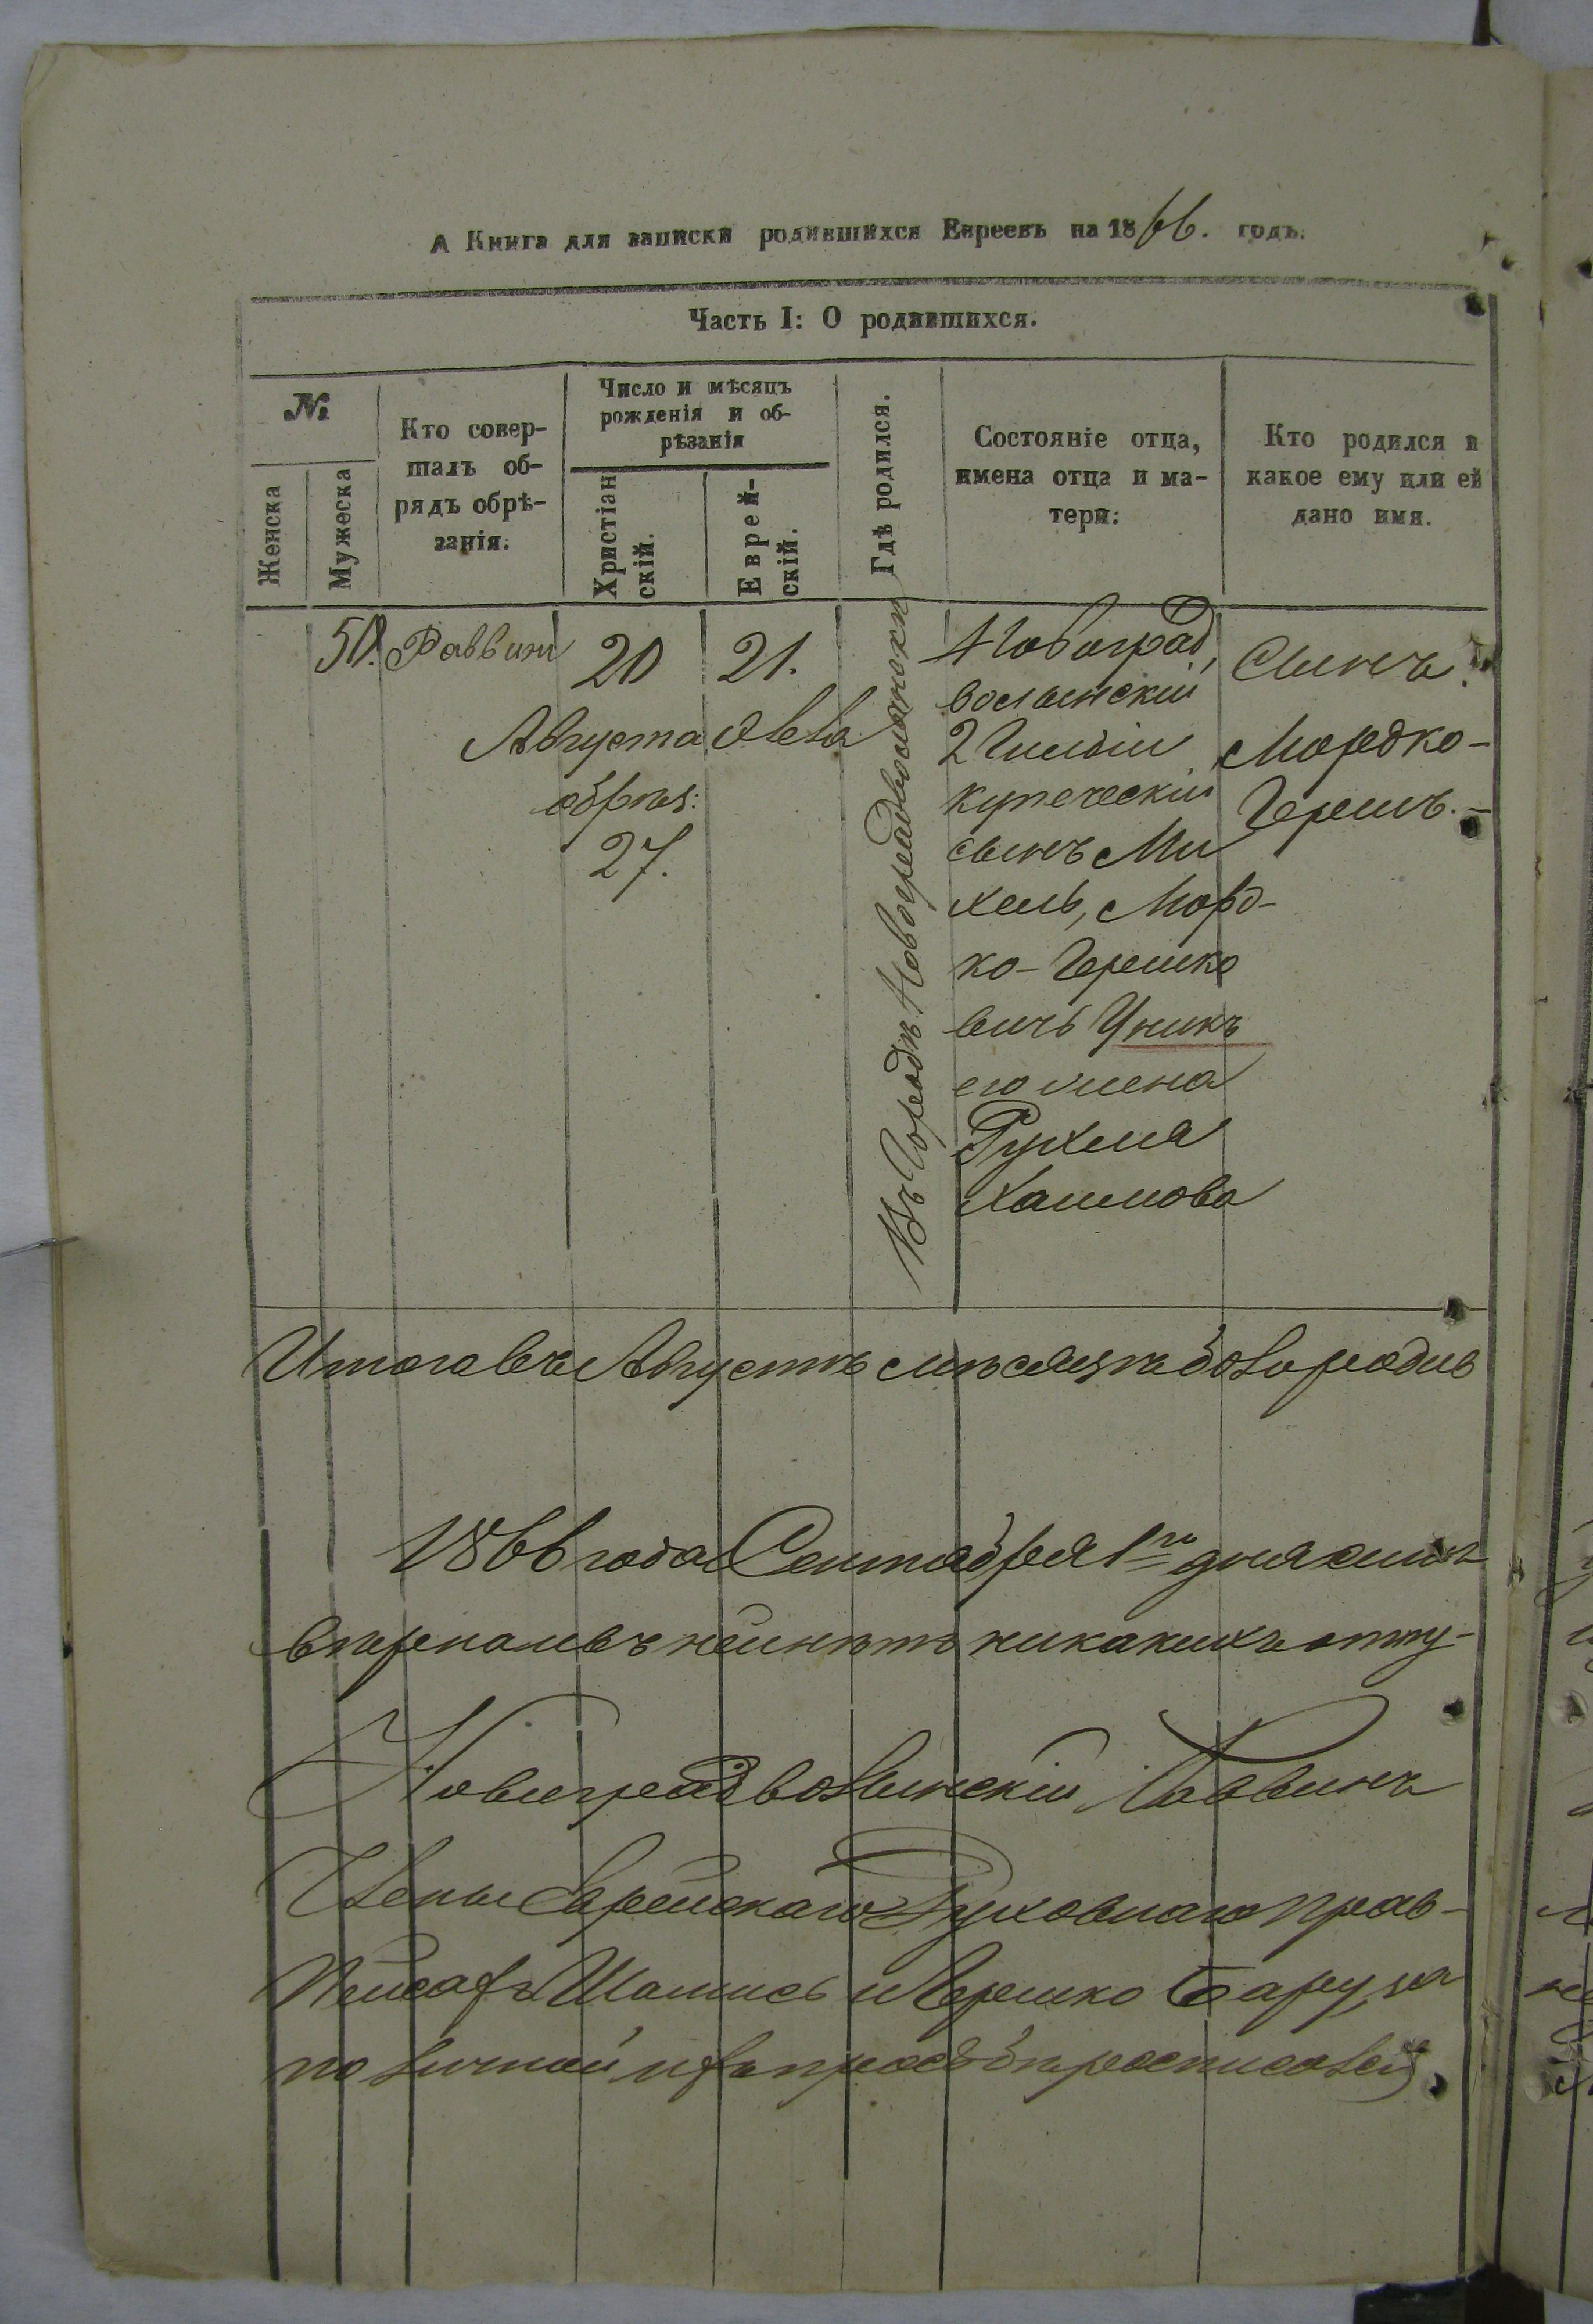 А Книга для записки родившихся Евреевъ на 1866. годъ.
Часть I: О родившихся.
№
Женска
Мужеска
Кто совер-
шалъ об-
рядъ обрѣ-
занія.
Число и мѣсяцъ
рожденія и об-
рѣзанія
Христіан
скій.
Еврей-
скій.
Гдѣ родился.
Состояніе отца,
имена отца и ма-
тери:
Кто родился и
какое ему или ей
дано имя.
Раввинъ
20
Августа
обрѣз:
27.
21.
Авва
Въ Городѣ Новоградволынскѣ
Новоград
волынскій
2 Гильдіи
купеческій
сынъ Ми
хель, Морд-
ко-Гершко
вичъ Уникъ
его жена
Рухля
Хаимова
Сынъ
Мордко-
Гершъ.-
Итого въ Августѣ мѣсяцѣ было родив
1866 года Сентября 1го дня
въ ней нѣтъ никакихъ
Новоградволынскій Раввинъ
Члены Еврейскаго Духовнаго Прав-
Шамисъ и Гершко
по личной ихъ просьбѣ росписался